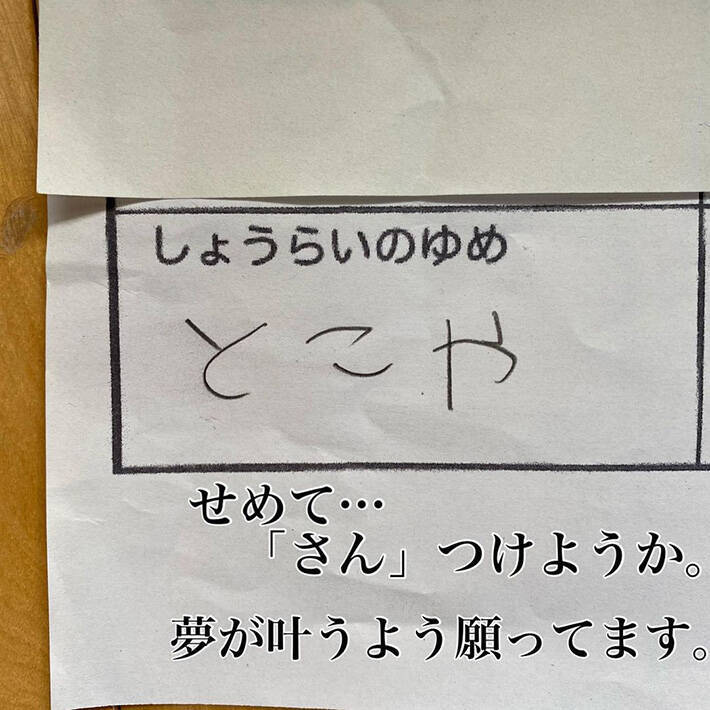 しょうらいのゆめ
とこや
せめて…
「さん」つけようか。
夢が叶うよう願ってます。